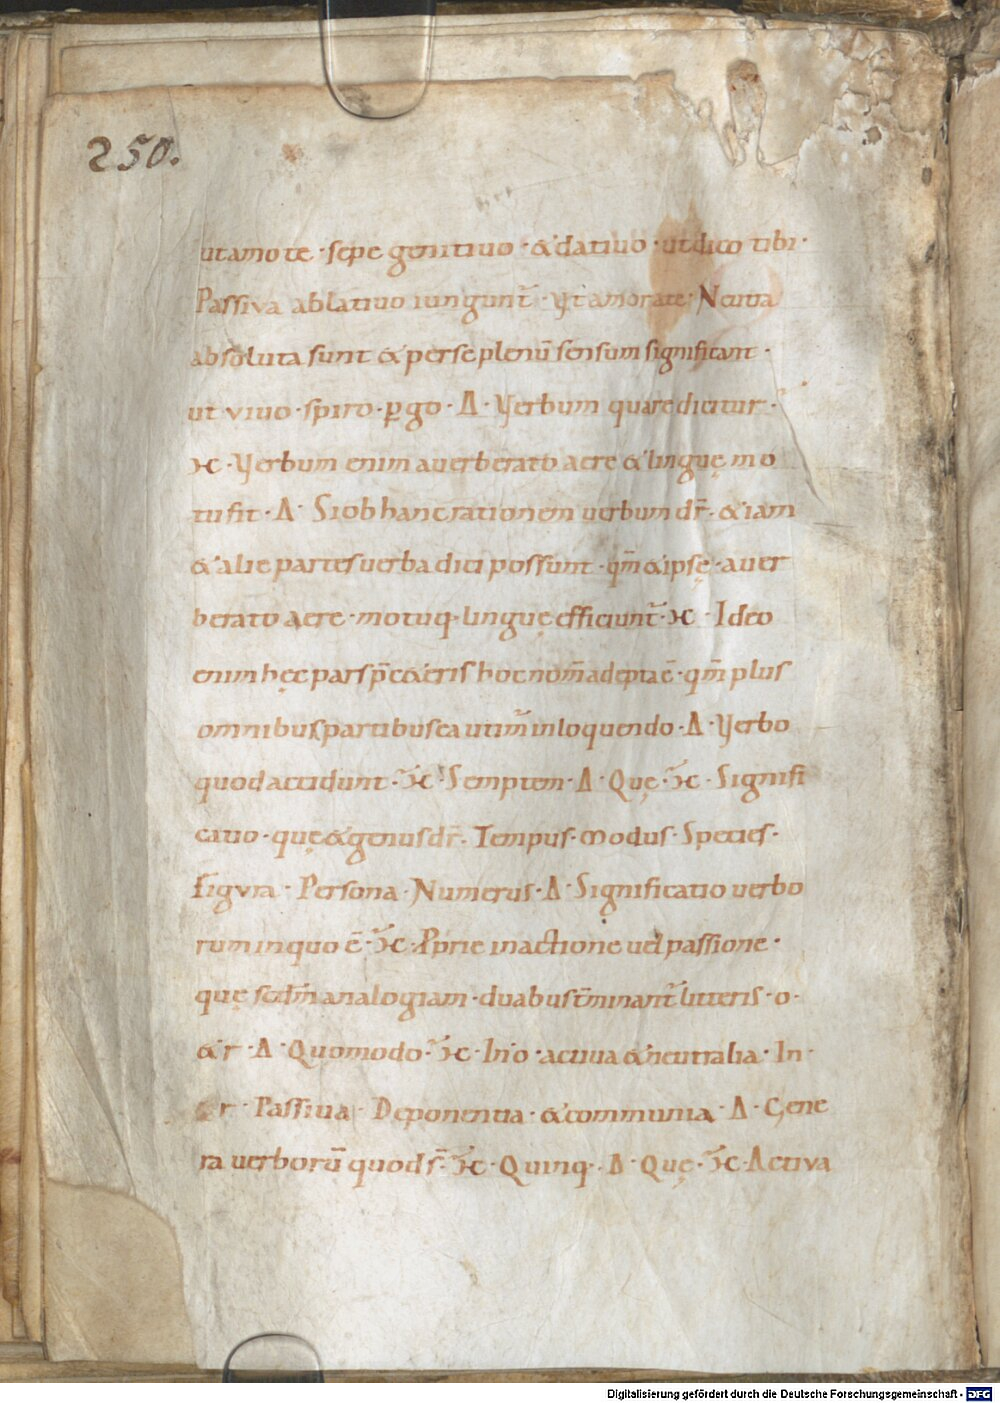 250.
ut amo te · sępe genitiuo · & datiuo · ut dico tibi ·
Passiva ablatiuo iungunt̄ · Vt amor a te · Neutra
absoluta sunt & per se plenū sensum significant ·
ut vivo · spiro · ꝑgo · Δ · Verbum quare dicitur ·
ϰ · Verbum enim a uerberato aere & linguę mo
tu fit · Δ · Si ob hanc rationem uerbum dr̄ · & iam
& alie partes uerba dici possunt · qm̄ & ipsę · a uer
berato aere · motuq· linguę efficiunt̄ · ϰ · Ideo
enim hęc pars p̄ c&eris hoc nom̄ adepta ē · qm̄ plus
omnibus partibus ea utim̄ in loquendo · Δ · Verbo
quod accidunt · ϰ · Semptem · Δ · Quę · ϰ · Signifi
catio · quę & genus dr̄ · Tempus · Modus · Species ·
Figvra · Persona · Numerus · Δ · Significatio uerbo
rum in quo ē · ϰ · Pprie in actione uel passione ·
quę scdm̄ analogiam · duabus t̄minant̄ litteris · o ·
& r · Δ · Quomodo · ϰ · In o · actiua & neutralia · In ·
r · Passiua · Deponentia · & communia · Δ · Gene
ra uerborū quod s̄ · ϰ · Quinq · Δ · Quę · ϰ · Activa
Digitalisierung gefördert durch die Deutsche Forschungsgemeinschaft - DFG